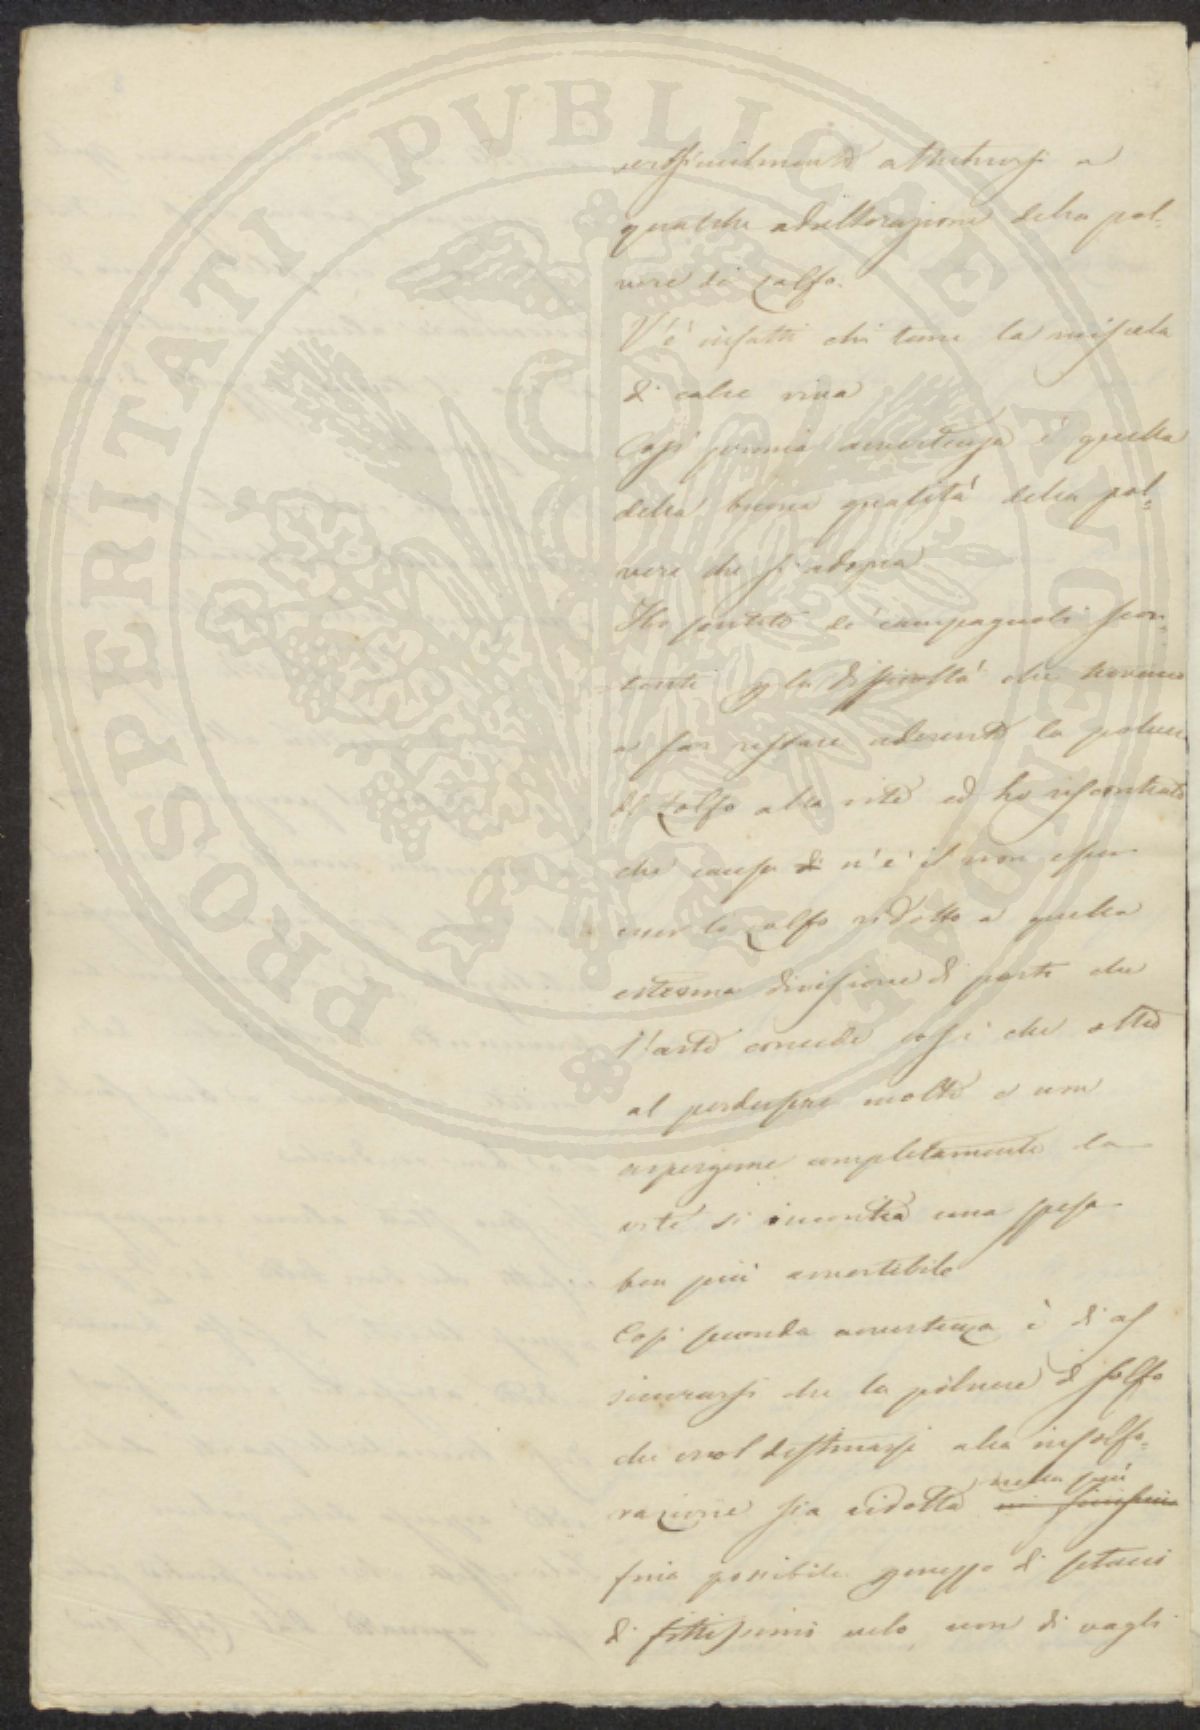 PROSPERITATI PVBLICAE AVGENDAE
attribuirsi a
qualche adulterazione della pol-
vere di Zolfo.
V'è infatti chi teme la miscela
di calce viva
Così prima avvertenza è quella
della buona qualità della pol-
vere che si adopra
Ho sentito de' campagnoli scon-
tenti p la difficoltà che trovano
a far restare aderente la polvere
di Zolfo alla vite ed ho riscontrato
che causa di n'è il non
lo zolfo ridotto a quella
estrema divisione di parti che
l'arte concede così che oltre
al perdersene molto e non
aspergerne completamente la
vite si incontra una spesa
ben più avvertibile
Così seconda avvertenza è di as
sicurarsi che la polvere di solfo
che vuol destinarsi alla insolfo-
razione sia ridotta nella più
fina possibile p mezzo di setacci
di fittissimi velo non di vagli